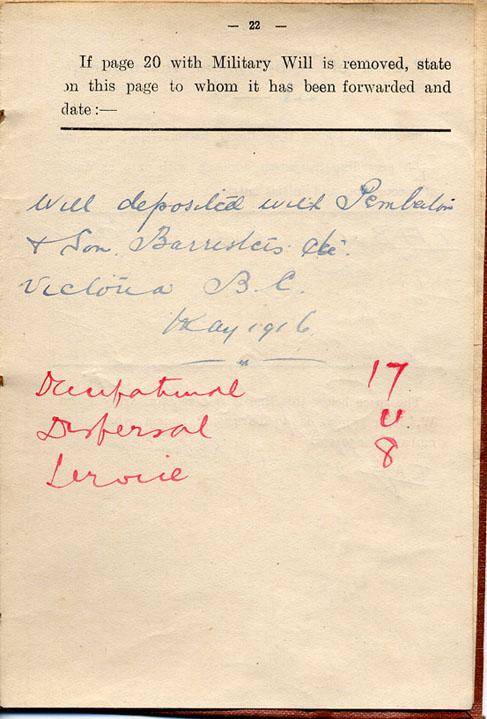 — 22 —
If page 20 with Military Will is removed, state
on this page to whom it has been forwarded and
date :—
Will deposited with Pemberton
& Son. Barristers etc.
Victoria B.C.
May 1916
Occupational 17
Dispersal U
Service 8